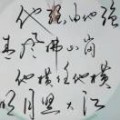 他强由他强
清风拂山岗
他横任他横
明月照大江